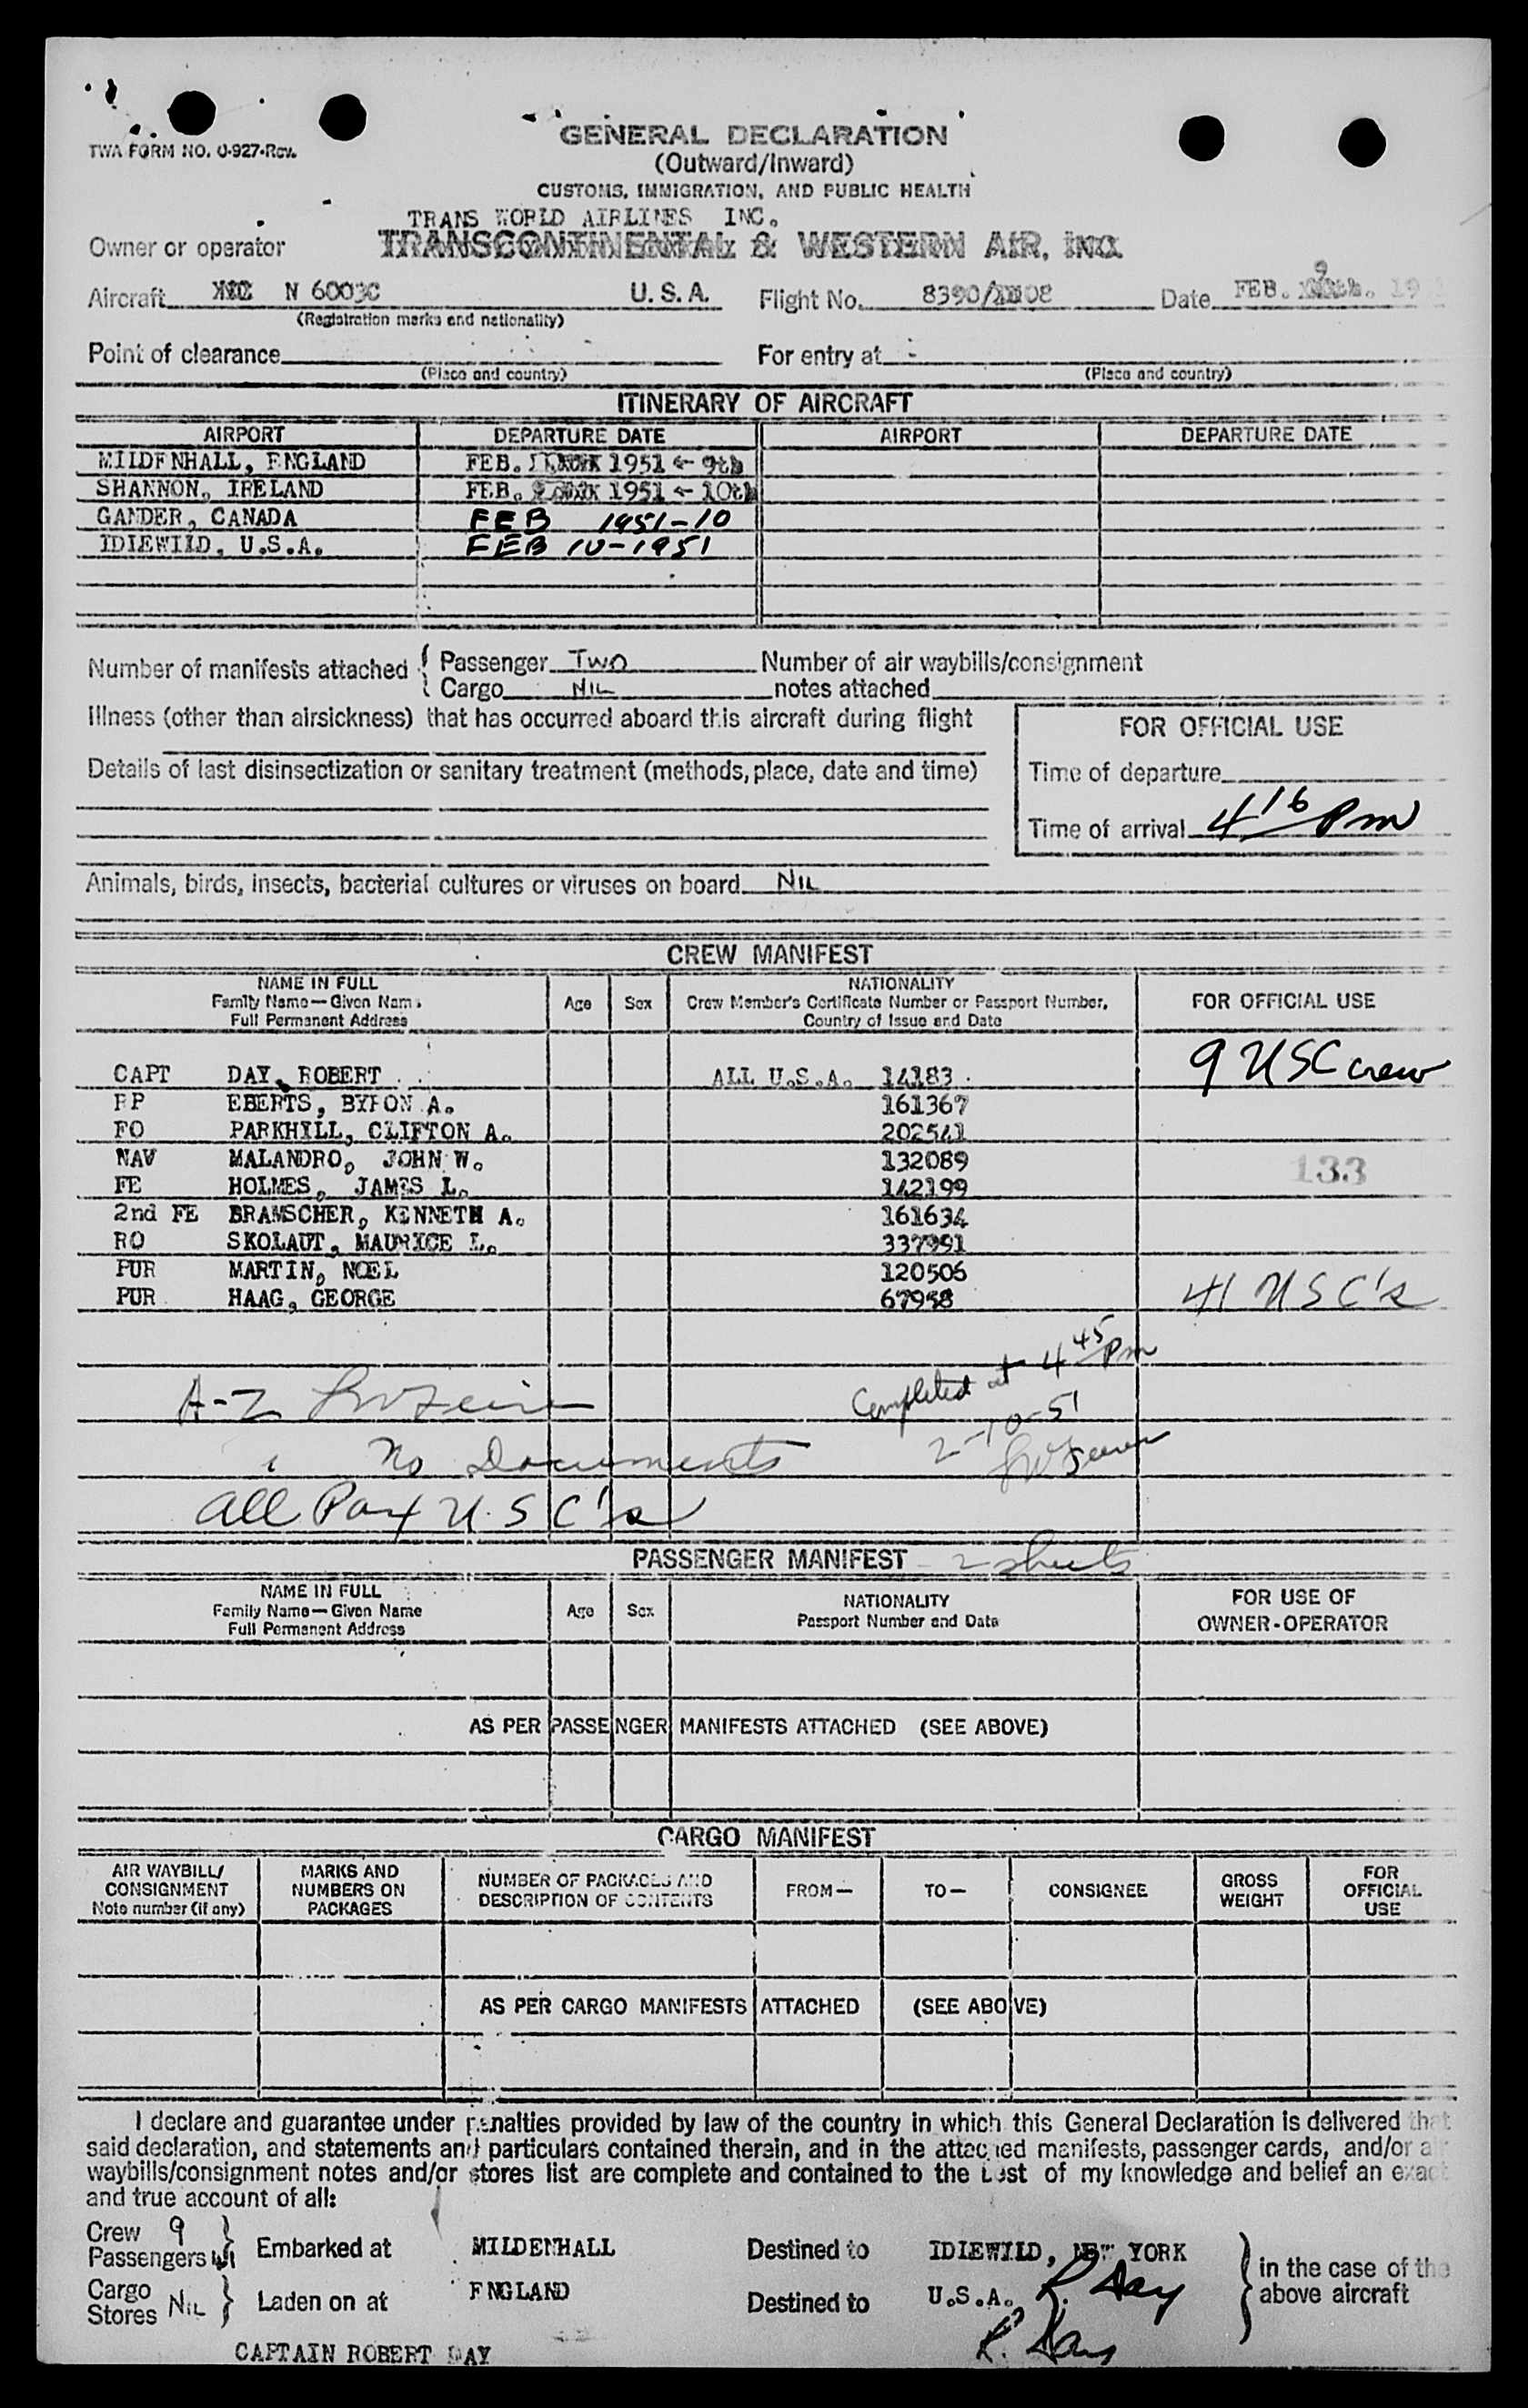 TWA FORM NO. O-927-Rev.
GENERAL DECLARATION
(Outward/Inward)
CUSTOMS, IMMIGRATION, AND PUBLIC HEALTH
TRANS WORLD AIRLINES INC.
Owner or operator TRANSCONTINENTAL & WESTERN AIR, INC.
Aircraft N 6003C U.S.A. Flight No. 8390/ 08 Date FEB. 9 19
(Registration marks and nationality)
Point of clearance For entry at
(Place and country) (Place and country)
ITINERARY OF AIRCRAFT
AIRPORT DEPARTURE DATE AIRPORT DEPARTURE DATE
MILDENHALL, ENGLAND FEB. 1951 - 9th
SHANNON, IRELAND FEB. 1951 - 10th
GANDER, CANADA FEB 1951-10
IDLEWILD, U.S.A. FEB 10-1951
Number of manifests attached { Passenger TWO Number of air waybills/consignment
Cargo NIL notes attached
Illness (other than airsickness) that has occurred aboard this aircraft during flight
FOR OFFICIAL USE
Details of last disinsectization or sanitary treatment (methods, place, date and time)
Time of departure
Time of arrival 4 16 Pm
Animals, birds, insects, bacterial cultures or viruses on board NIL
CREW MANIFEST
NAME IN FULL
Family Name—Given Name
Full Permanent Address
Age Sex
NATIONALITY
Crew Member's Certificate Number or Passport Number,
Country of Issue and Date
FOR OFFICIAL USE
9 USC crew
CAPT DAY, ROBERT ALL U.S.A. 14183
FP EBERTS, BYRON A. 161367
FO PARKHILL, CLIFTON A. 202541
NAV MALANDRO, JOHN W. 132089
133
FE HOLMES, JAMES L. 142199
2nd FE BRAMSCHER, KENNETH A. 161634
RO SKOLAUT, MAURICE L. 337991
PUR MARTIN, NOEL 120506
PUR HAAG, GEORGE 67958
41 USC's
Completed at 4 45 Pm
A-2
2-10-51
No Documents
all Pax U.S C's
PASSENGER MANIFEST - 2 sheets
NAME IN FULL
Family Name—Given Name
Full Permanent Address
Age Sex
NATIONALITY
Passport Number and Date
FOR USE OF
OWNER-OPERATOR
AS PER PASSENGER MANIFESTS ATTACHED (SEE ABOVE)
CARGO MANIFEST
AIR WAYBILL/
CONSIGNMENT
Note number (if any)
MARKS AND
NUMBERS ON
PACKAGES
NUMBER OF PACKAGES AND
DESCRIPTION OF CONTENTS
FROM— TO— CONSIGNEE
GROSS
WEIGHT
FOR
OFFICIAL
USE
AS PER CARGO MANIFESTS ATTACHED (SEE ABOVE)
I declare and guarantee under penalties provided by law of the country in which this General Declaration is delivered that
said declaration, and statements and particulars contained therein, and in the attached manifests, passenger cards, and/or air
waybills/consignment notes and/or stores list are complete and contained to the best of my knowledge and belief an exact
and true account of all:
Crew 9
Passengers 41 } Embarked at MILDENHALL Destined to IDLEWILD, NEW YORK
in the case of the
above aircraft
Cargo
Stores NIL } Laden on at ENGLAND Destined to U.S.A. R. Day
R. Day
CAPTAIN ROBERT DAY